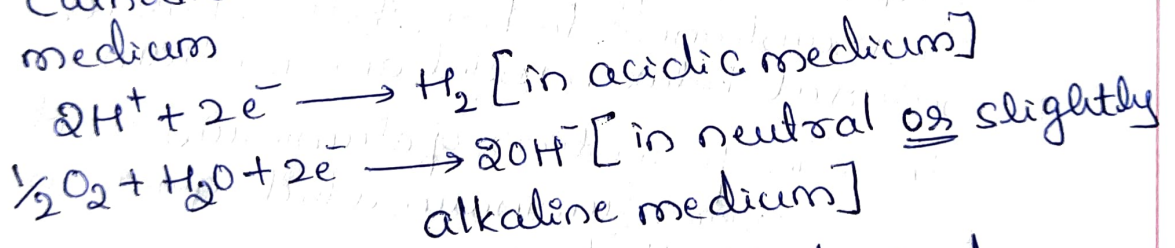 medium
2H⁺ + 2e⁻ ⟶ H₂ [in acidic medium]
½O₂ + H₂O + 2e⁻ ⟶ 2OH⁻ [in neutral or slightly
alkaline medium]